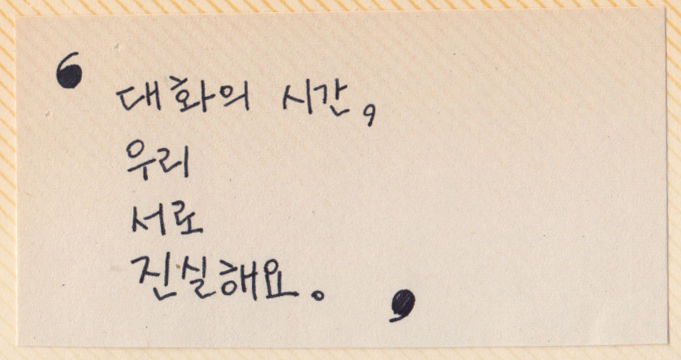 ‘대화의 시간,
우리
서로
진실해요.’